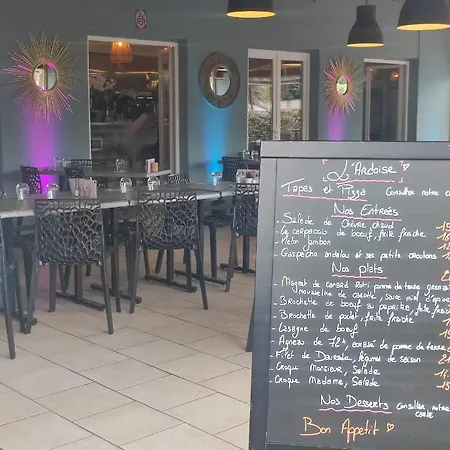 L'Ardoise
Tapas et Pizza Consultez notre
Nos Entrées
- Salade de Chèvre chaud
- Le carpaccio de boeuf, frite fraîche
- Melon Jambon
- Gaspacho andalou et ses petits croutons
Nos plats
- Magret de canard Roti, pomme de terre grenaille
mousseline de carotte,
- Brochette de boeuf au paprika, frite fraîche
- Brochette de poulet, frite fraîche
- Lasagne de boeuf
- Agneau de 7h, écrasé de pomme de terre
- Filet de Daurade, légumes de saison
- Croque Monsieur, Salade
- Croque Madame, Salade
Nos Desserts consulter notre
carte
Bon Appetit